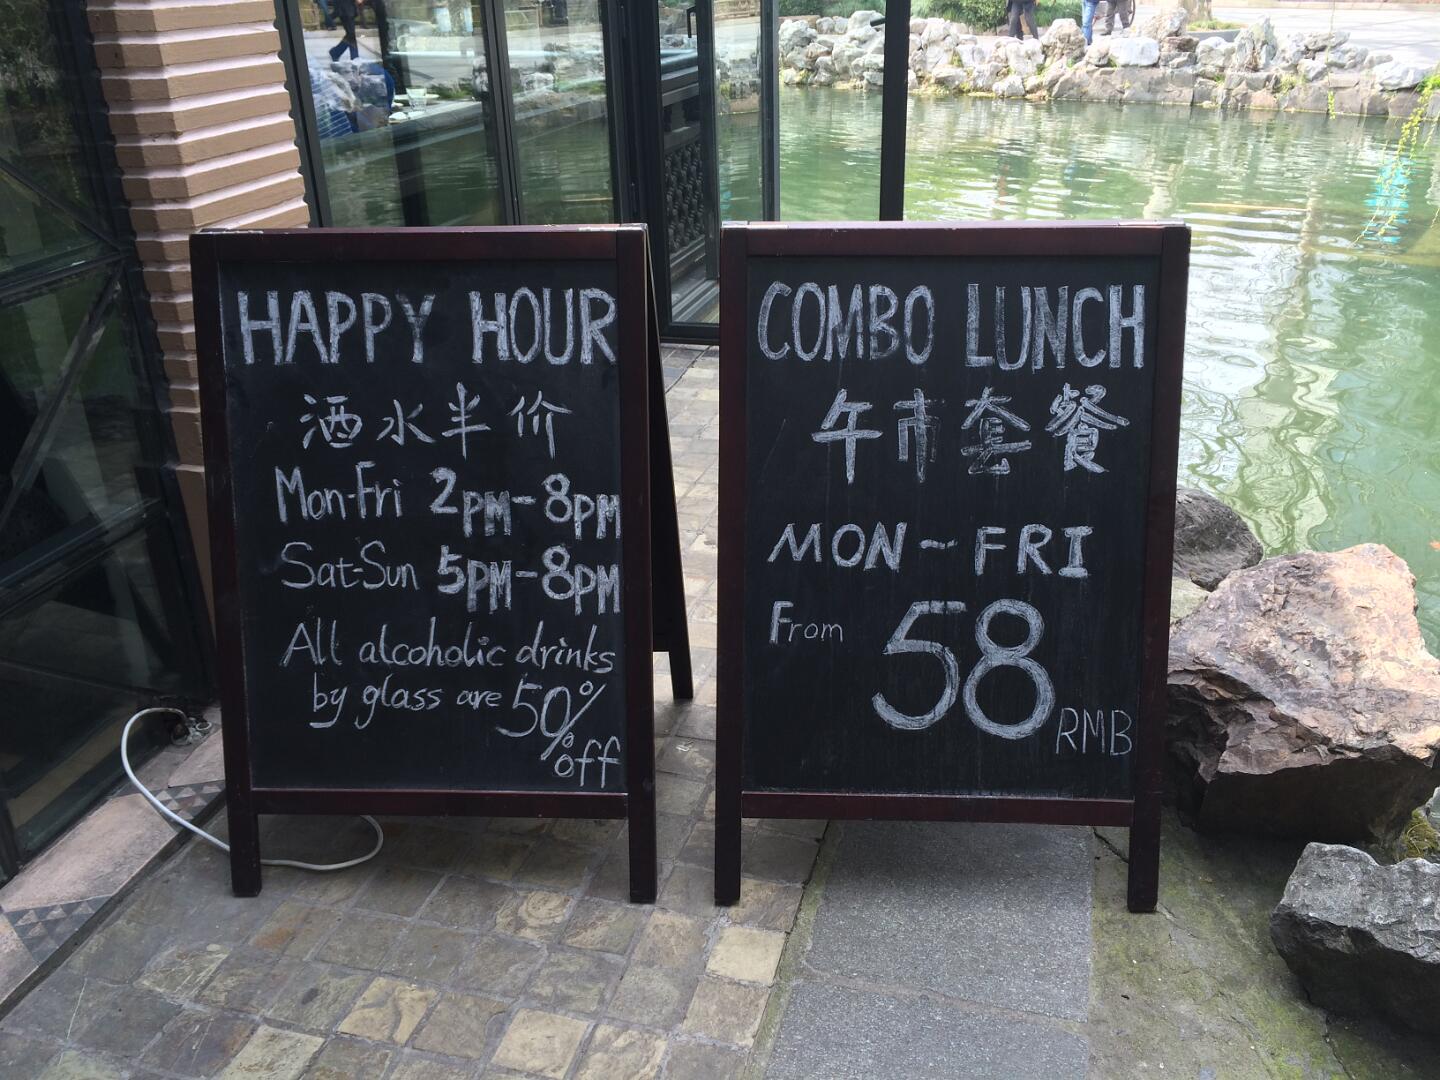 HAPPY HOUR
酒水半价
Mon-Fri 2PM-8PM
Sat-Sun 5PM-8PM
All alcoholic drinks
by glass are 50%
off
COMBO LUNCH
午市套餐
MON-FRI
From 58 RMB